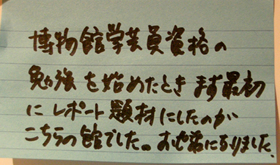 博物館学芸員資格の
勉強を始めたとき まず最初
にレポート題材にしたのが
こちらの館でした。お世話になりました。